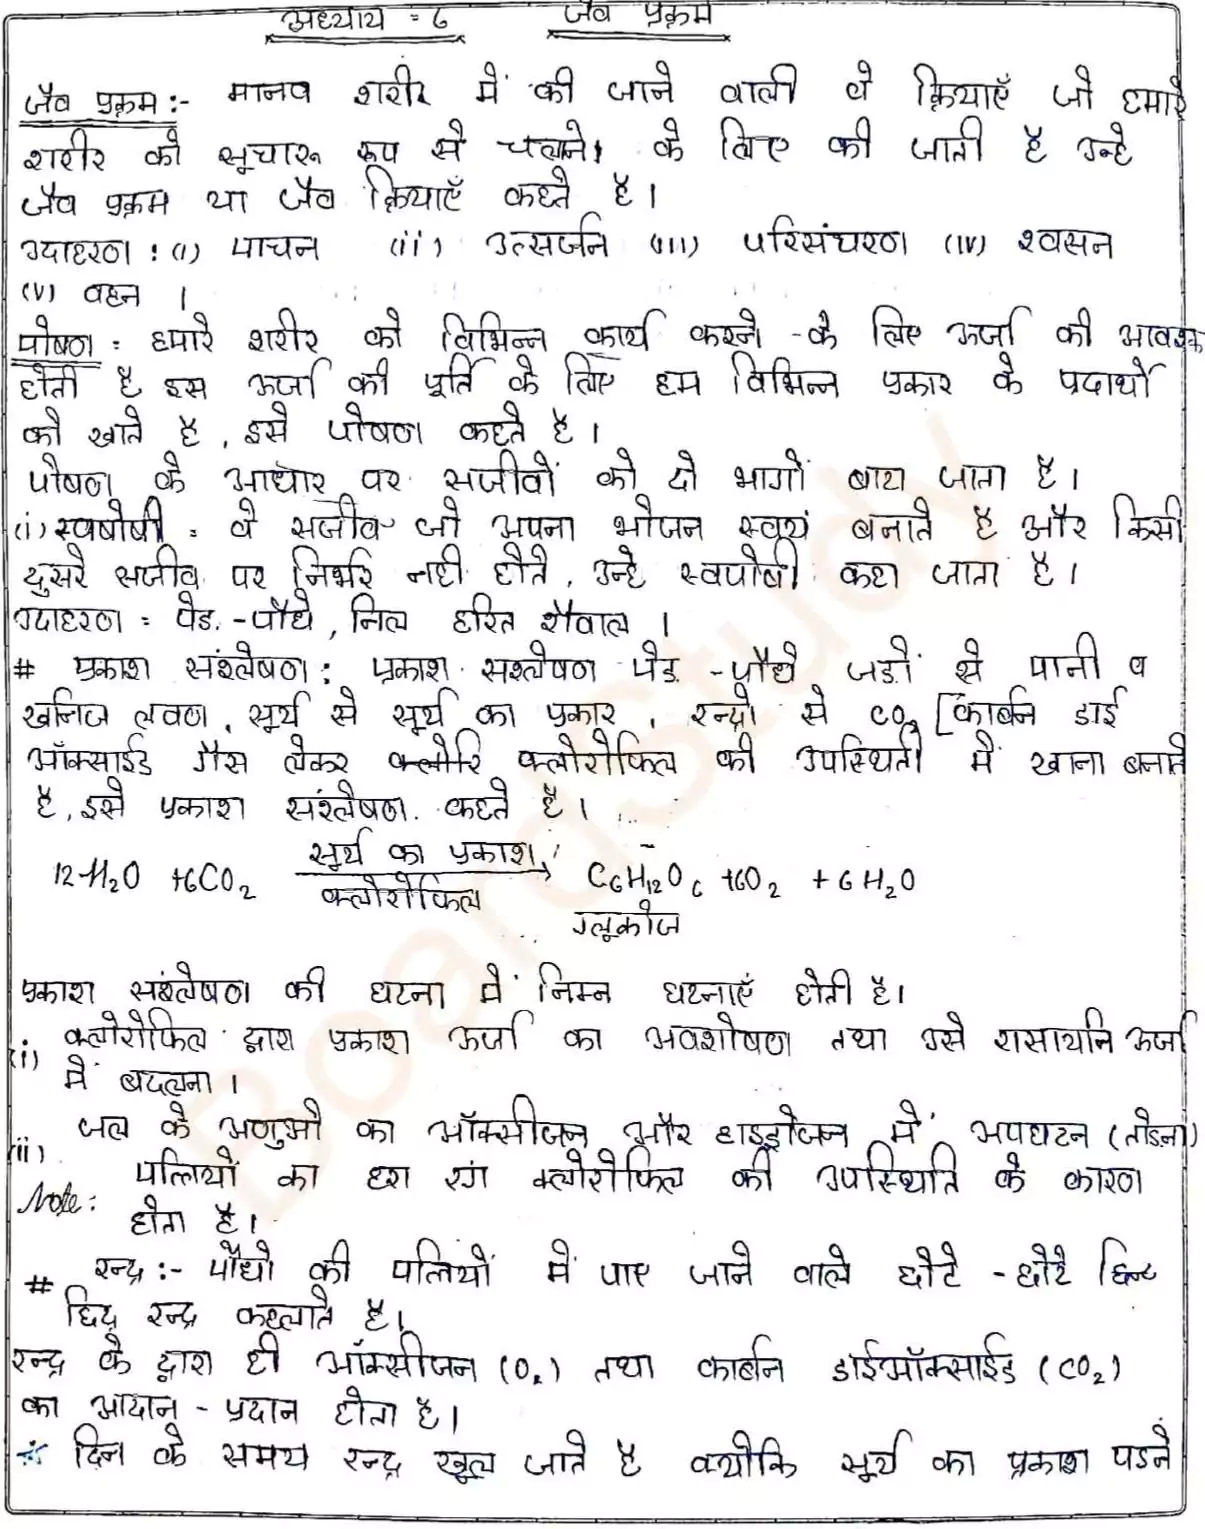 अध्याय = 6 जैव प्रक्रम
जैव प्रक्रम :- मानव शरीर में की जाने वाली वे क्रियाएँ जो हमारे
शरीर को सूचारू रूप से चलाने के लिए की जाती है उन्हे
जैव प्रक्रम या जैव क्रियाएँ कहते है।
उदाहरण : (i) पाचन (ii) उत्सर्जन (iii) परिसंचरण (iv) श्वसन
(v) वहन ।
पोषण : हमारे शरीर को विभिन्न कार्य करने के लिए ऊर्जा की आवश्यक
होती है इस ऊर्जा की पूर्ति के लिए हम विभिन्न प्रकार के पदार्थो
को खाते है, इसे पोषण कहते है।
पोषण के आधार पर सजीवों को दो भागों बाटा जाता है।
(i) स्वषोषी : वे सजीव जो अपना भोजन स्वयं बनाते है और किसी
दुसरे सजीव पर निर्भर नही होते, उन्हे स्वपोषी कहा जाता है।
उदाहरण : पेड़ -पौधे, निल हरित शैवाल ।
# प्रकाश संश्लेषण : प्रकाश संश्लेषण पेड़ -पौधे जड़ों से पानी व
खनिज लवण, सूर्य से सूर्य का प्रकार, रन्द्रो से CO2 [कार्बन डाई
ऑक्साईड गैस लेकर क्लोरि क्लोरोफिल की उपस्थिती में खाना बनाते
है, इसे प्रकाश संश्लेषण कहते है।
12H2O +6CO2 सूर्य का प्रकाश → C6H12O6 +6O2 +6H2O
क्लोरोफिल ग्लूकोज
प्रकाश संश्लेषण की घटना में निम्न घटनाएँ होती है।
(i) क्लोरोफिल द्वारा प्रकाश ऊर्जा का अवशोषण तथा उसे रासायनि ऊर्जा
में बदलना।
(ii) जल के अणुओ का ऑक्सीजन और हाइड्रोजन में अपघटन (तोडना)
Note: पत्तियों का हरा रंग क्लोरोफिल की उपस्थिति के कारण
होता है।
# रन्द्र :- पौधो की पत्तियों में पाए जाने वाले छोटे -छोटे
छिद्र रन्द्र कहलाते है।
रन्द्र के द्वारा ही ऑक्सीजन (O2) तथा कार्बन डाईऑक्साईड (CO2)
का आदान - प्रदान होता है।
* दिन के समय रन्द्र खूल जाते है क्योकि सूर्य का प्रकाश पडने
BoardStudy